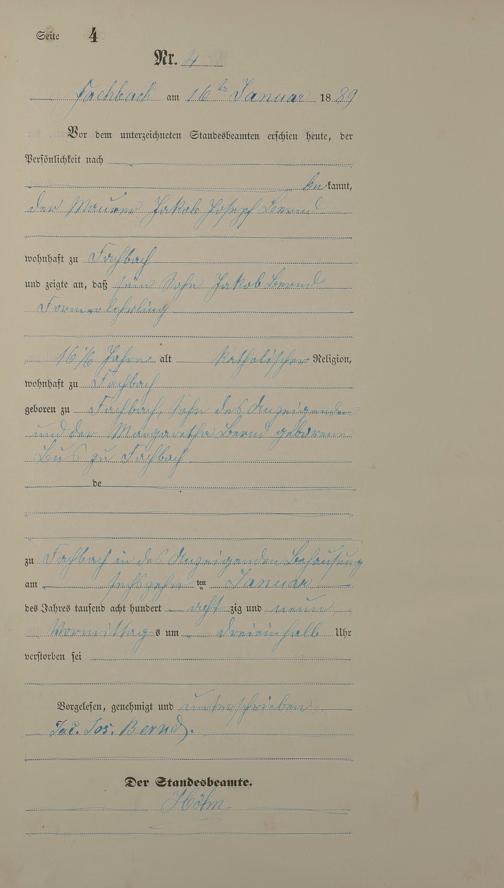 Seite 4
Nr. 4
Fachbach am 16ten Januar 1889
Vor dem unterzeichneten Standesbeamten erschien heute, der
Persönlichkeit nach
be kannt,
der Maurer Jakob Joseph Bernd
wohnhaft zu Fachbach
und zeigte an, daß sein Sohn Jakob Bernd
Formerlehrling
16 Jahre alt katholischer Religion,
wohnhaft zu Fachbach
geboren zu Fachbach, Sohn des Anzeigenden
und der Margaretha Bernd geborene
zu Fachbach
de
zu Fachbach in des Anzeigenden Behausung
am sechszehn ten Januar
des Jahres tausend acht hundert acht zig und neun
Vormittag s um dreieinhalb Uhr
verstorben sei
Vorgelesen, genehmigt und unterschrieben
Jac. Jos. Bernd.
Der Standesbeamte.